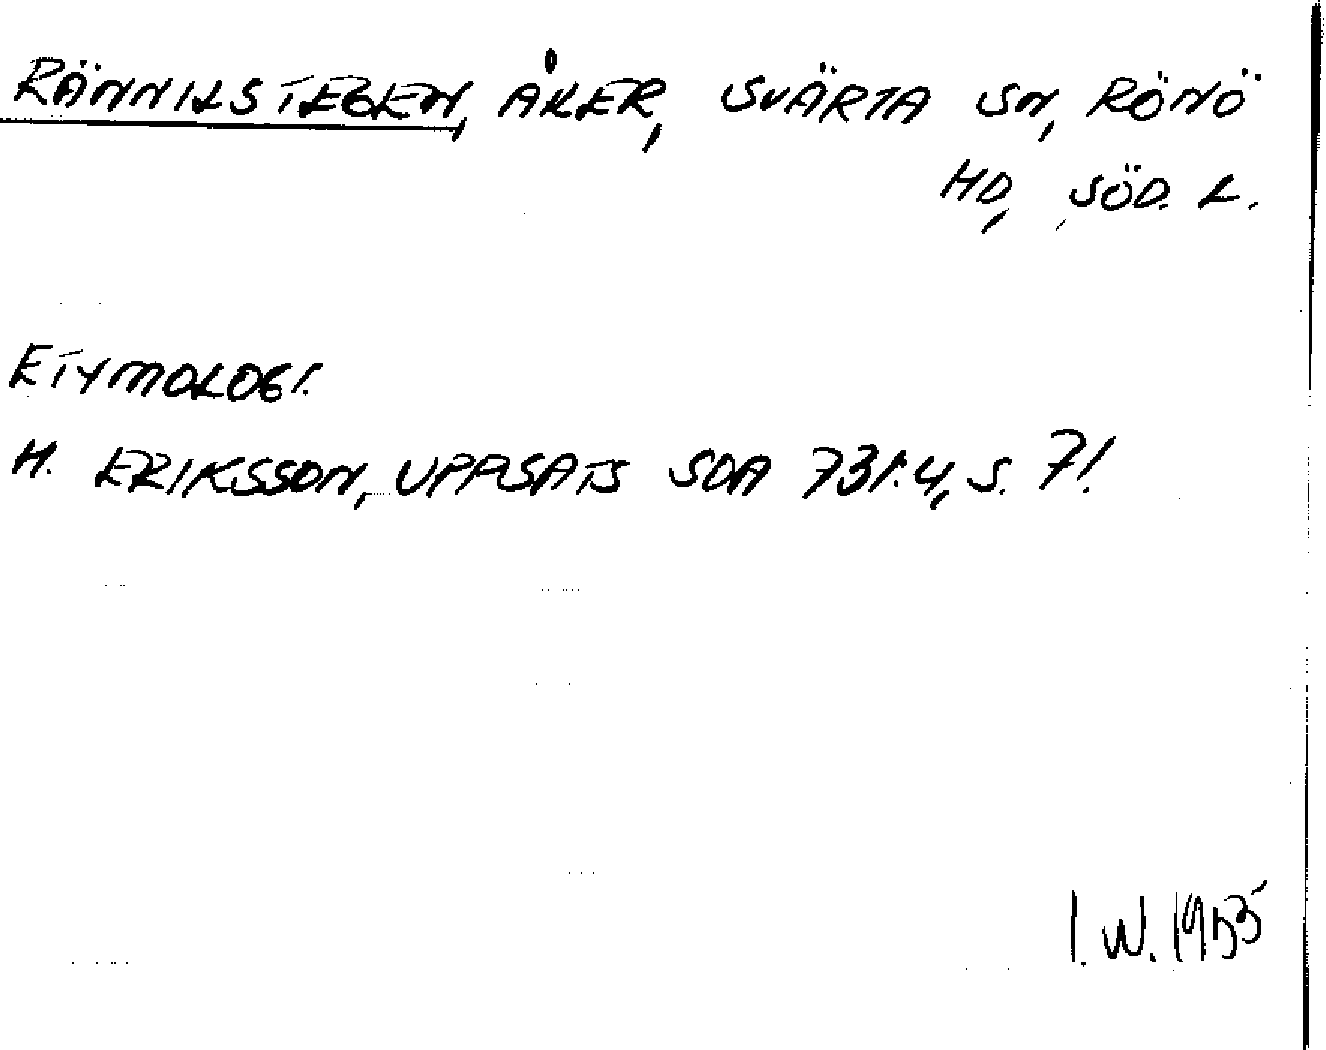 RÄNNILSTEGEN, ÅKER, SVÄRTA SN, RÖNÖ
HD, SÖD. L.
ETYMOLOGI.
H. ERIKSSON, UPPSATS SOA 731:4, S. 71.
I. W. 1955